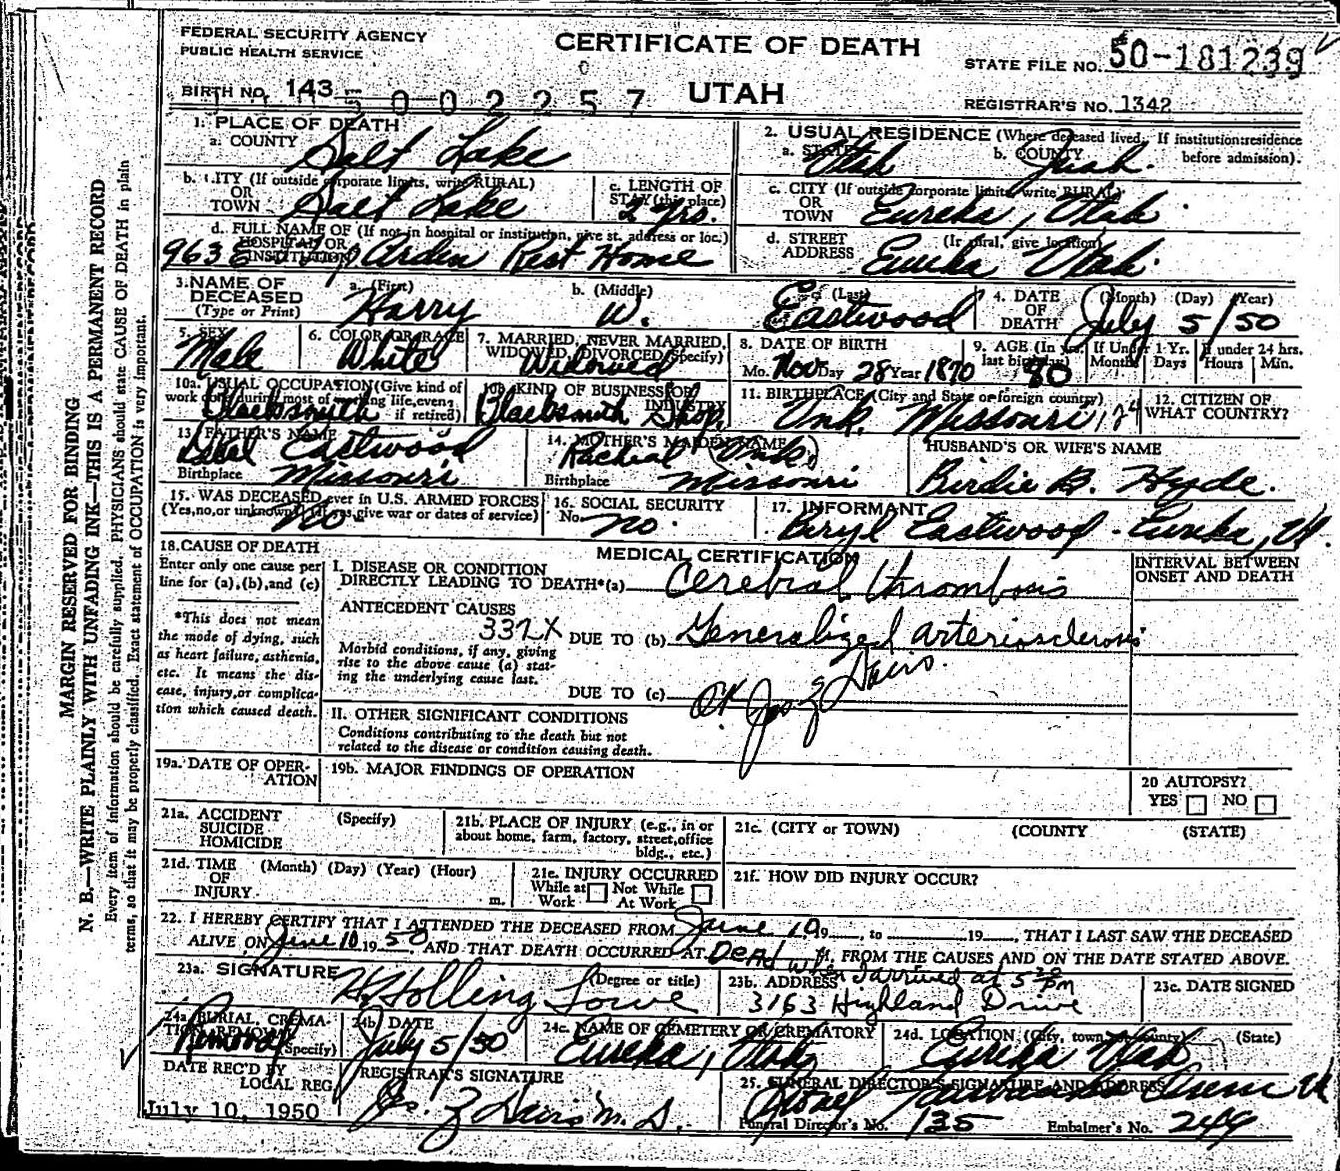 FEDERAL SECURITY AGENCY
PUBLIC HEALTH SERVICE
CERTIFICATE OF DEATH
STATE FILE NO. 50-181239
BIRTH NO. 143
5002257
UTAH
REGISTRAR'S NO. 1342
1. PLACE OF DEATH
a. COUNTY Salt Lake
2. USUAL RESIDENCE (Where deceased lived. If institution: residence before admission).
a. STATE Utah b. COUNTY Juab
b. CITY (If outside corporate limits, write RURAL) OR TOWN Salt Lake
c. LENGTH OF STAY (this place) 2 yrs.
c. CITY (If outside corporate limits write RURAL) OR TOWN Eureka, Utah
d. FULL NAME OF (If not in hospital or institution, give st. address or loc.) HOSPITAL OR INSTITUTION
963 E Arden Rest Home
d. STREET ADDRESS (If rural, give location) Eureka Utah
3. NAME OF DECEASED (Type or Print)
a. (First) Harry
b. (Middle) W.
c. (Last) Eastwood
4. DATE OF DEATH (Month) (Day) (Year) July 5/50
5. SEX Male
6. COLOR OR RACE White
7. MARRIED, NEVER MARRIED, WIDOWED, DIVORCED (Specify) Widowed
8. DATE OF BIRTH Mo. Nov Day 28 Year 1870
9. AGE (In yrs. last birthday) 80
If Under 1 Yr. Months Days
If under 24 hrs. Hours Min.
10a. USUAL OCCUPATION (Give kind of work done during most of working life, even if retired) Blacksmith
10b. KIND OF BUSINESS OR INDUSTRY Blacksmith Shop
11. BIRTHPLACE (City and State or foreign country) Unk. Missouri
12. CITIZEN OF WHAT COUNTRY?
13. FATHER'S NAME Eastwood
Birthplace Missouri
14. MOTHER'S MAIDEN NAME Racheal (Unk.)
Birthplace Missouri
HUSBAND'S OR WIFE'S NAME
Birdie B. Hyde.
15. WAS DECEASED ever in U.S. ARMED FORCES (Yes, no, or unknown) (If yes, give war or dates of service) no
16. SOCIAL SECURITY No. no.
17. INFORMANT Beryl Eastwood - Eureka, Ut.
18. CAUSE OF DEATH
Enter only one cause per line for (a), (b), and (c)
*This does not mean the mode of dying, such as heart failure, asthenia, etc. It means the disease, injury, or complication which caused death.
MEDICAL CERTIFICATION
INTERVAL BETWEEN ONSET AND DEATH
I. DISEASE OR CONDITION DIRECTLY LEADING TO DEATH*(a) Cerebral thrombosis
ANTECEDENT CAUSES
332X
Morbid conditions, if any, giving rise to the above cause (a) stating the underlying cause last.
DUE TO (b) Generalized arteriosclerosis
DUE TO (c) OK Jos Z Davis.
II. OTHER SIGNIFICANT CONDITIONS
Conditions contributing to the death but not related to the disease or condition causing death.
19a. DATE OF OPERATION
19b. MAJOR FINDINGS OF OPERATION
20 AUTOPSY?
YES NO
21a. ACCIDENT SUICIDE HOMICIDE (Specify)
21b. PLACE OF INJURY (e.g., in or about home, farm, factory, street, office bldg., etc.)
21c. (CITY or TOWN) (COUNTY (STATE)
21d. TIME OF INJURY (Month) (Day) (Year) (Hour) m.
21e. INJURY OCCURRED
While at Work Not While At Work
21f. HOW DID INJURY OCCUR?
22. I HEREBY CERTIFY THAT I ATTENDED THE DECEASED FROM June 19, to 19, THAT I LAST SAW THE DECEASED
ALIVE ON June 10 1950 AND THAT DEATH OCCURRED AT Dead when I arrived at 5 30 pm M, FROM THE CAUSES AND ON THE DATE STATED ABOVE.
23a. SIGNATURE (Degree or title)
Lowe
23b. ADDRESS 3163 Highland Drive
23c. DATE SIGNED
24a. BURIAL, CREMATION, REMOVAL (Specify) Removal
24b. DATE July 5/50
24c. NAME OF CEMETERY OR CREMATORY Eureka, Utah
24d. LOCATION (City, town or County) (State) Eureka Utah
DATE REC'D BY LOCAL REG.
July 10, 1950
REGISTRAR'S SIGNATURE
Jos. Z Davis M.D.
25. FUNERAL DIRECTOR'S SIGNATURE AND ADDRESS
Funeral Director's No. 135 Embalmer's No. 249
MARGIN RESERVED FOR BINDING
N. B.—WRITE PLAINLY WITH UNFADING INK—THIS IS A PERMANENT RECORD
Every item of information should be carefully supplied. PHYSICIANS should state CAUSE OF DEATH in plain
terms, so that it may be properly classified. Exact statement of OCCUPATION is very important.